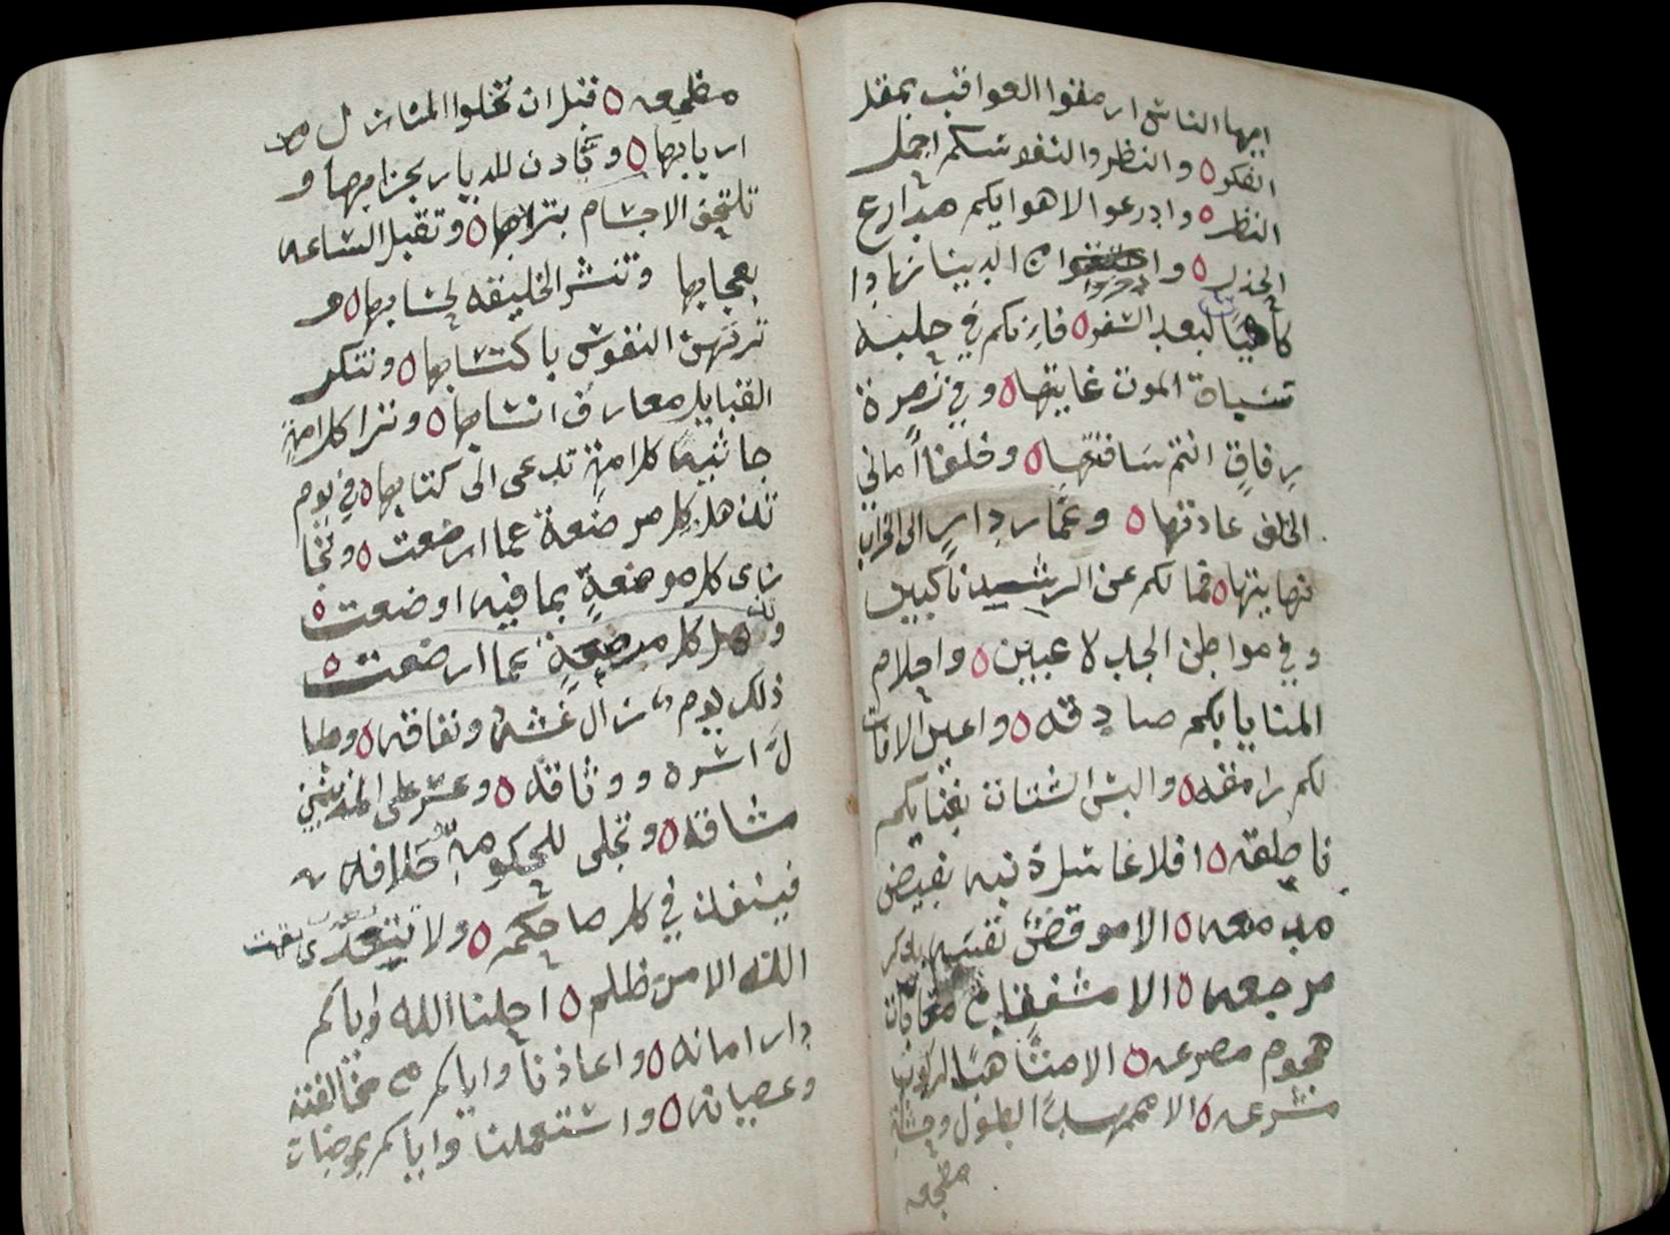 ايها الناس ارمقوا العواقب بمقل
الفكر ه والنظر والنفوسكم اجمل
النظر ه وادرعوا لاهوايكم مدارع
الحذر ه وا من الدنيا زادا
كافيا لبعد السفر ه فانكم في حلبة
سباق الموت غايتها ه وفي زمرة
رفاق انتم ساقتها ه وخلفا امالي
الخلف عادتها ه وعمار دار الى الخراب
نهايتها ه فما لكم عن الرشيد ناكبين
وفي مواطن الجد لاعبين ه واحلام
المنايا بكم صادقه ه واعين الافات
لكم رامقه ه والسن الشتات بفنايكم
ناطقه ه افلا غاسل ذنبه بفيض
مدمعه ه الا موقظ نفسه بذكر
مرجعه ه الا مشفقا من مفاجات
هجوم مصرعه ه الا متاهبا لركوب
مشرعه ه الا ممهدا لطول وحشة
مطجعه
مطجعه ه قبل ان تخلوا المنازل من
اربابها ه وتأذن للديار بخرابها و
تلتحف الاجسام بترابها ه وتقبل الساعه
بعجابها وتنشر الخليقه لحسابها ه و
ترتهن النفوس باكتسابها ه وتنكر
القبايل معارف انسابها ه وترا كل امة
جاثية كل امة تدعى الى كتابها ه في يوم
تذهل كل مرضعة عما ارضعت ه وتجا
زى كل موضعة بما فيه اوضعت ه
وتذهل كل مرضعة عما ارضعت ه
ذلك يوم زال غشه ونفاقه ه وطا
ل اسره ووثاقه ه وعسر على المذنبين
مشاقه ه وتجلى للحكومة خلافه
فينفذ في كل ما حكم ه ولا يتعدى
الله الا من ظلم ه احلنا الله واياكم
دار امانه ه واعاذنا واياكم من مخالفته
وعصيانه ه واستعملنا واياكم بموجبات